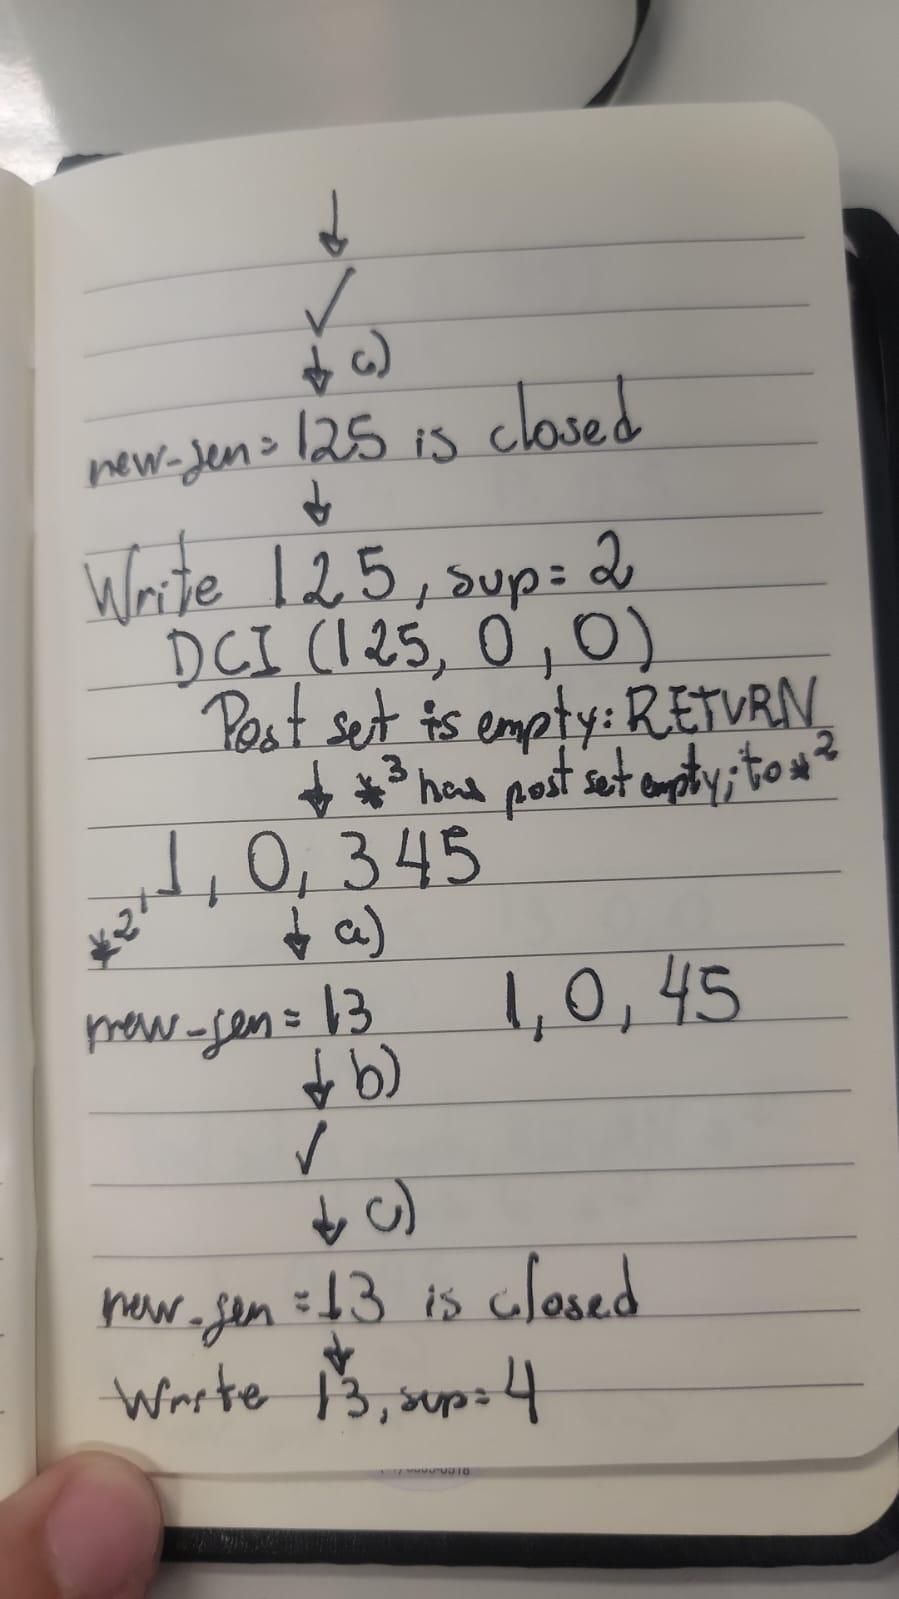 ↓
✓
↓ c)
new-gen = 125 is closed
↓
Write 125, sup = 2
DCI (125, 0, 0)
Post set is empty: RETURN
↓ *3 has post set empty; to *2
*2', 1, 0, 345
↓ a)
new-gen = 13 1, 0, 45
↓ b)
✓
↓ c)
new-gen = 13 is closed
↓
Write 13, sup = 4